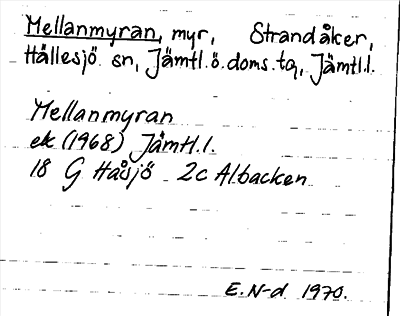 Mellanmyran, myr, Strandåker,
Hällesjö sn, Jämtl.ö.doms.tg, Jämtl.l.
Mellanmyran
ek (1968) Jämtl.l.
18 G Håsjö 2c Albacken
E. N-d 1970.